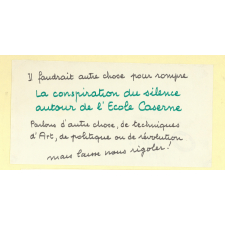 Il faudrait autre chose pour rompre
La conspiration du silence
autour de l'Ecole Caserne
Parlons d'autre chose, de techniques
d'Art, de politique ou de révolution
mais laisse nous rigoler!